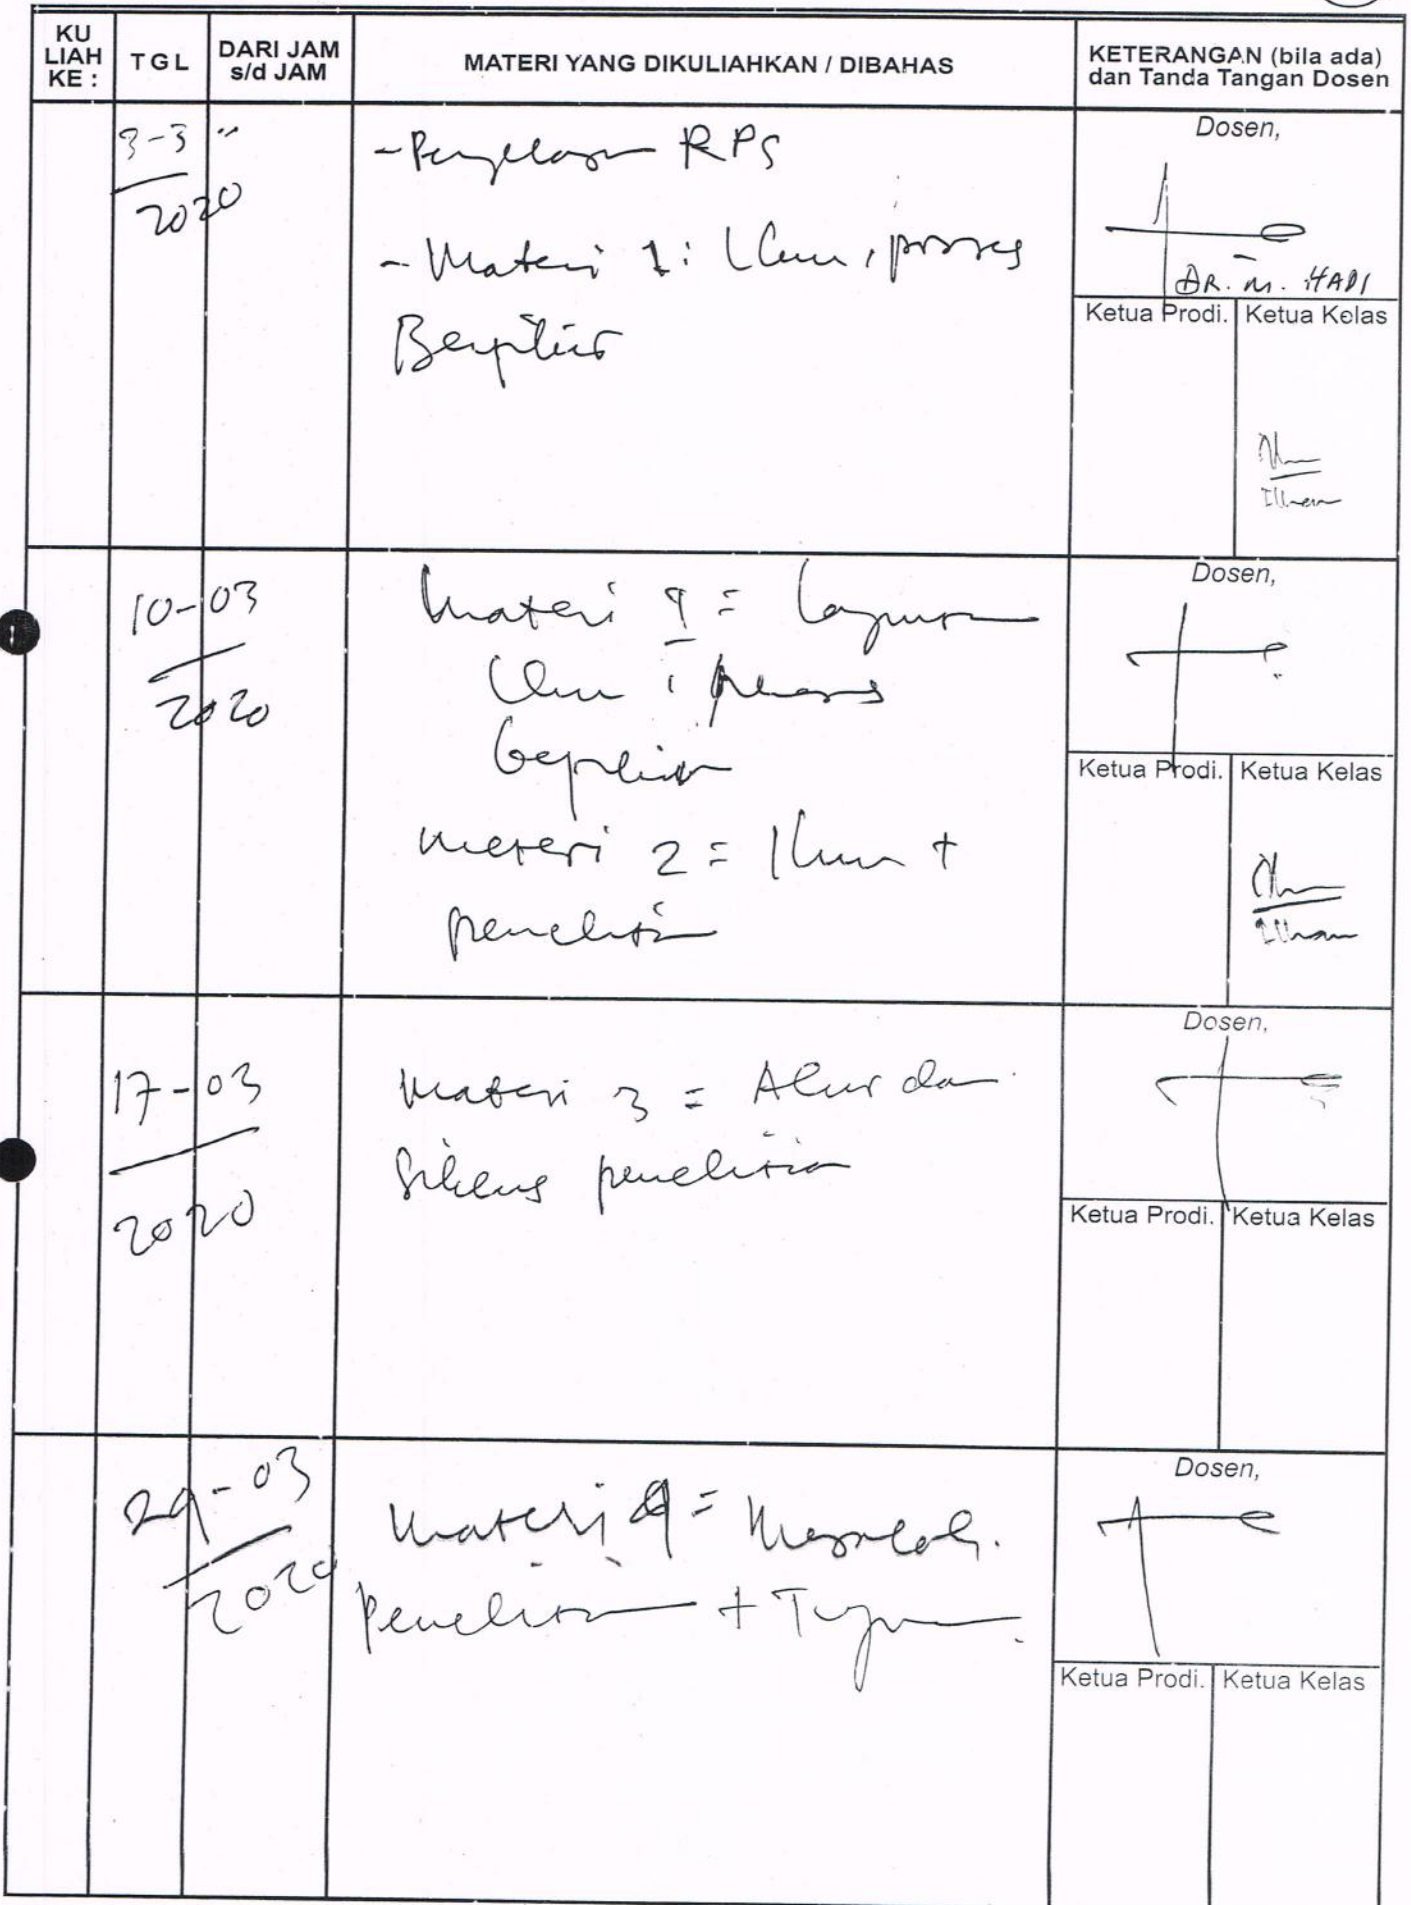 KU LIAH KE :
TGL
DARI JAM s/d JAM
MATERI YANG DIKULIAHKAN / DIBAHAS
KETERANGAN (bila ada) dan Tanda Tangan Dosen
3-3
2020
- RPS
- Materi 1: Ilmu, proses
Dosen,
DR. M. HADI
Ketua Prodi.
Ketua Kelas
Ilham
10-03
2020
Materi 1 =
Ilmu :
materi 2 = Ilmu +
penelitian
Dosen,
Ketua Prodi.
Ketua Kelas
Ilham
17-03
2020
Materi 3 = Alur dan
penelitian
Dosen,
Ketua Prodi.
Ketua Kelas
24-03
2020
Materi 4 = Masalah
penelitian + Tujuan
Dosen,
Ketua Prodi.
Ketua Kelas